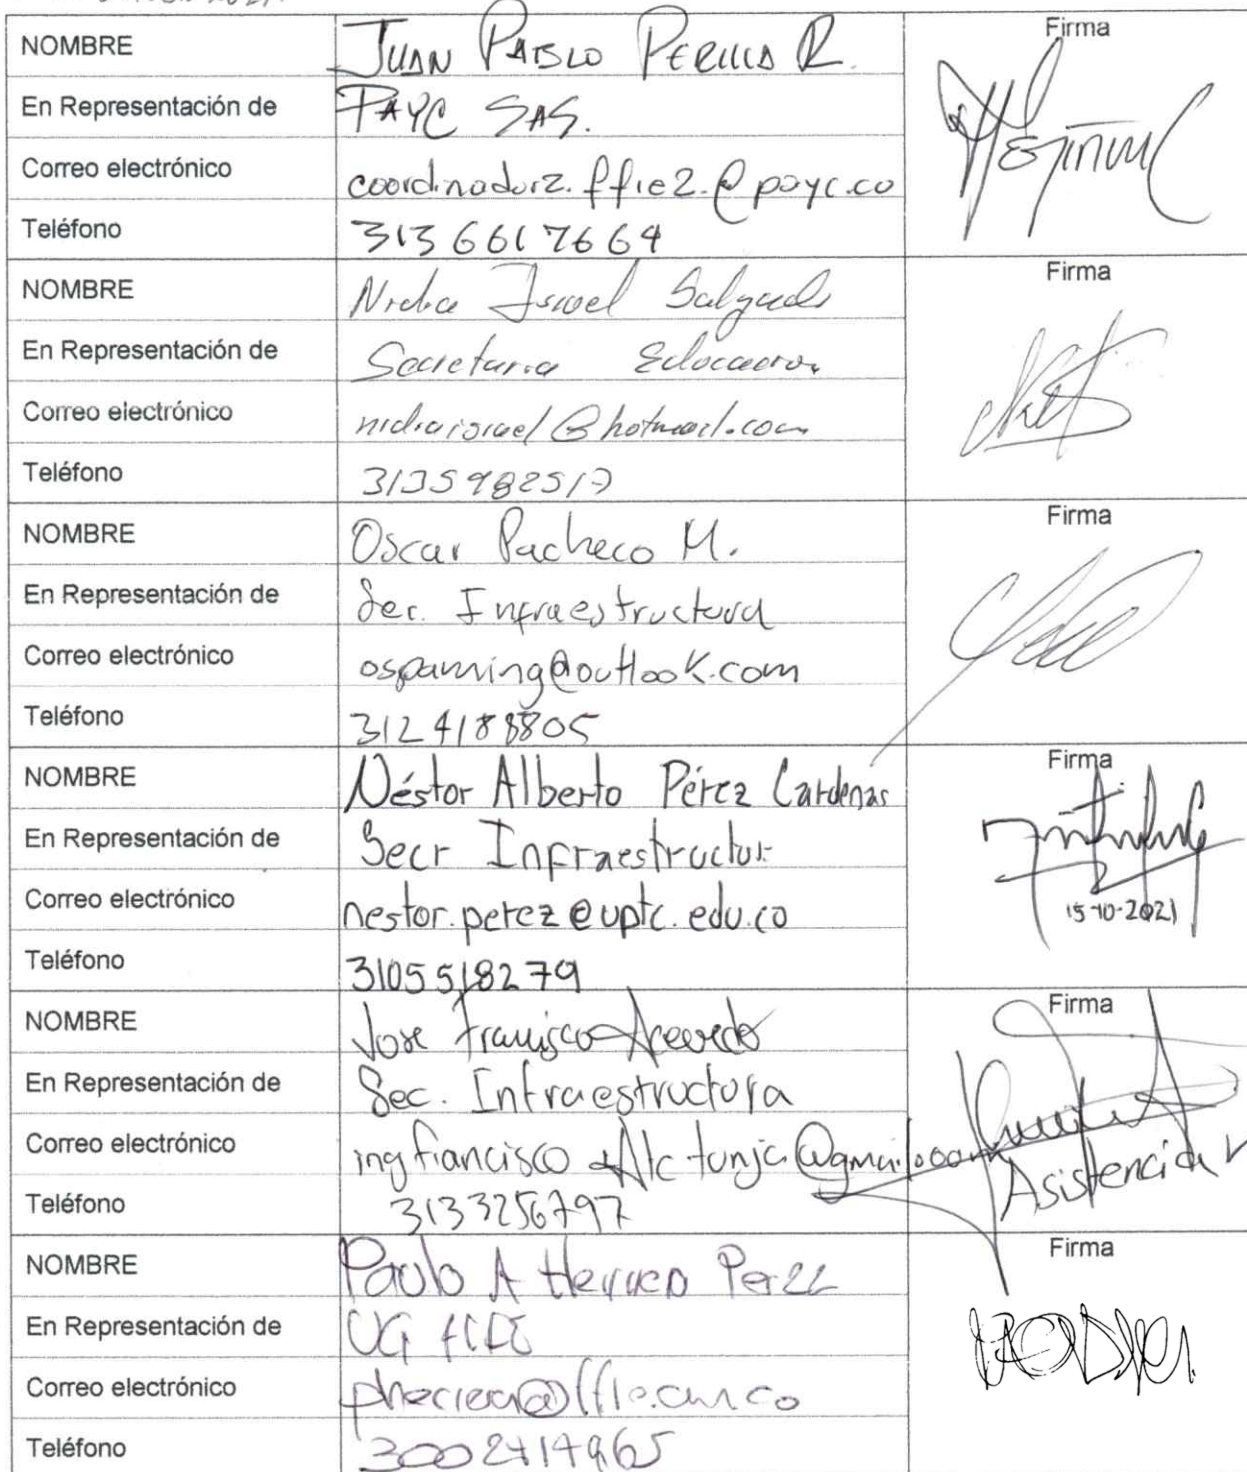 NOMBRE JUAN PABLO PERILLA R. Firma
En Representación de PAYC SAS.
Correo electrónico coordinador2.ffie2.@payc.co
Teléfono 313 6617664
NOMBRE Nidia Israel Salgado Firma
En Representación de Secretaria Educacion
Correo electrónico nidiaisrael@hotmail.com
Teléfono 3135982517
NOMBRE Oscar Pacheco M. Firma
En Representación de Sec. Infraestructura
Correo electrónico ospaming@outlook.com
Teléfono 3124188805
NOMBRE Néstor Alberto Pérez Cardenas Firma
En Representación de Secr Infraestructur
Correo electrónico nestor.perez@uptc.edu.co 15-10-2021
Teléfono 3105518279
NOMBRE Jose Francisco Acevedo Firma
En Representación de Sec. Infraestructura
Correo electrónico ingfrancisco Alc tunja@gmail.com
Asistencia
Teléfono 3133256797
NOMBRE Paulo A Herrera Perez Firma
En Representación de UG FFIE
Correo electrónico
Teléfono